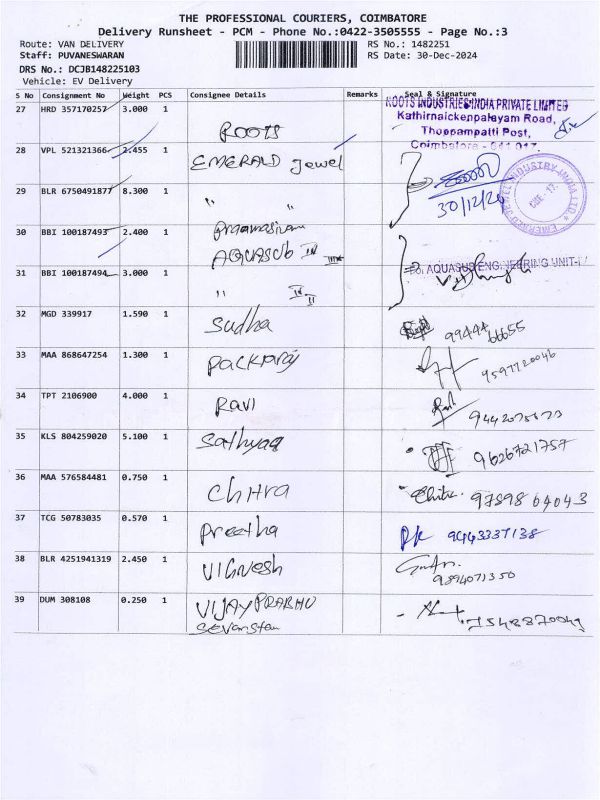 THE PROFESSIONAL COURIERS, COIMBATORE
Delivery Runsheet - PCM - Phone No.:0422-3505555 - Page No.:3
Route: VAN DELIVERY
RS No.: 1482251
Staff: PUVANESWARAN
RS Date: 30-Dec-2024
DRS No.: DCJB148225103
Vehicle: EV Delivery
S No Consignment No Weight PCS Consignee Details Remarks Seal & Signature
27 HRD 357170257 3.000 1 ROOTS
ROOTS INDUSTRIES INDIA PRIVATE LIMITED
Kathirnaickenpalayam Road,
Thoppampatti Post,
Coimbatore - 641 017
28 VPL 521321366 2.455 1 EMERALD Jewel
29 BLR 6750491877 8.300 1 " "
30/12/24
EMERALD JEWEL INDUSTRY INDIA LTD.
30 BBI 100187493 2.400 1
AQUASUB IV
31 BBI 100187494 3.000 1 " IV
For AQUASUB ENGINEERING UNIT-IV
32 MGD 339917 1.590 1 Sudha
33 MAA 868647254 1.300 1 Packiaraj 9597720046
34 TPT 2106900 4.000 1 Ravi
35 KLS 804259020 5.100 1 9626721757
36 MAA 576584481 0.750 1 Chitra 9789864043
37 TCG 50783035 0.570 1 Preetha 9443337138
38 BLR 4251941319 2.450 1 Vignesh 9894071350
39 DUM 308108 0.250 1 VIJAY PRABHU